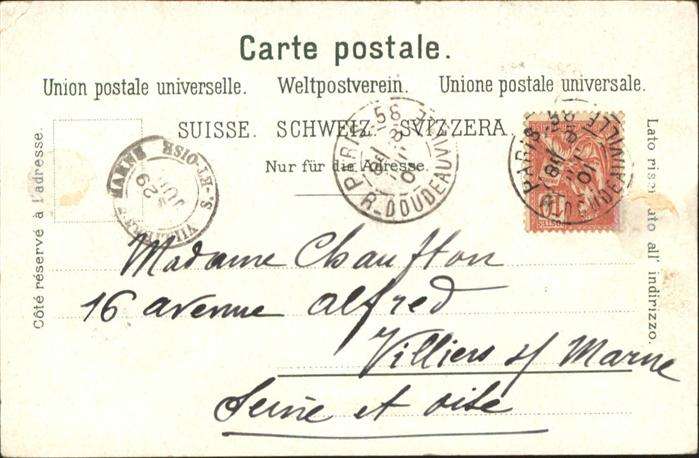 Carte postale.
Union postale universelle. Weltpostverein. Unione postale universale.
SUISSE. SCHWEIZ. SVIZZERA.
Nur für die Adresse.
Côté réservé à l'adresse.
Lato riservato all' indirizzo.
PARIS 58
R. DOUDEAUVILLE
PARIS 58
R. DOUDEAUVILLE
ET-OISE
29
JUIL
Madame Chauffton
16 avenue Alfred
Villiers s/ Marne
Seine et oise